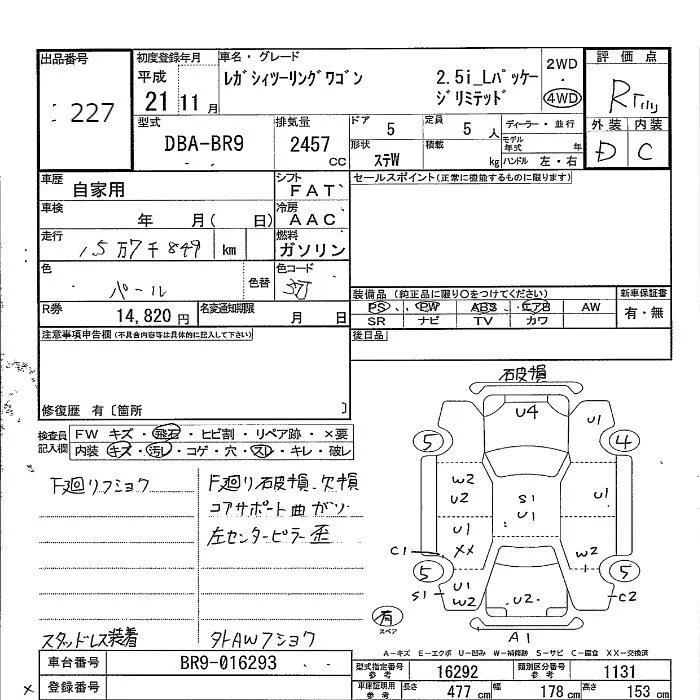 出品番号 初度登録年月 車名・グレード 2WD 評価点
平成 レガシィツーリングワゴン 2.5i_Lパッケー ・
227 21 11 月 ジリミテッド 4WD R
型式 排気量 ドア 5 定員 5 人 ディーラー・並行 外装 内装
DBA-BR9 2457 cc 形状 ステW 積載 kg モデル年式 年 D C
ハンドル 左・右
車歴 自家用 シフト FAT セールスポイント(正常に機能するものに限ります)
車検 年 月( 日) 冷房 AAC
走行 15万7千849 km 燃料 ガソリン
色 パール 色替 色カラーコード
装備品 (純正品に限り○をつけてください) 新車保証書
R券 14,820 円 名変通知期限 月 日 PS PW ABS エアB AW 有・無
SR ナビ TV カワ
注意事項申告欄(不具合内容等は具体的に記入して下さい) 後日品
修復歴 有〔箇所 〕
石皮損
検査員記入欄 FW キズ・飛石・ヒビ割・リペア跡・×要
内装 キズ・汚レ・コゲ・穴・スレ・キレ・破レ
U4 U1
5 4
F廻リフショク F廻リ石皮損、欠損
W2 U2 S1 U1 U1
コアサポート曲ガソ
左センターピラー歪 U1 XX W2
C1
5 5
S1 U1 W2 U2 C2
有
スペア
A1
スタッドレス装着 タトAWフショク
A-キズ E-エクボ U-凹み W-補修跡 S-サビ C-腐食 XX-交換済
車台番号 BR9-016293 型式指定番号 参考 16292 類別区分番号 参考 1131
登録番号 車庫証明用 参考 長さ 477 cm 幅 178 cm 高さ 153 cm